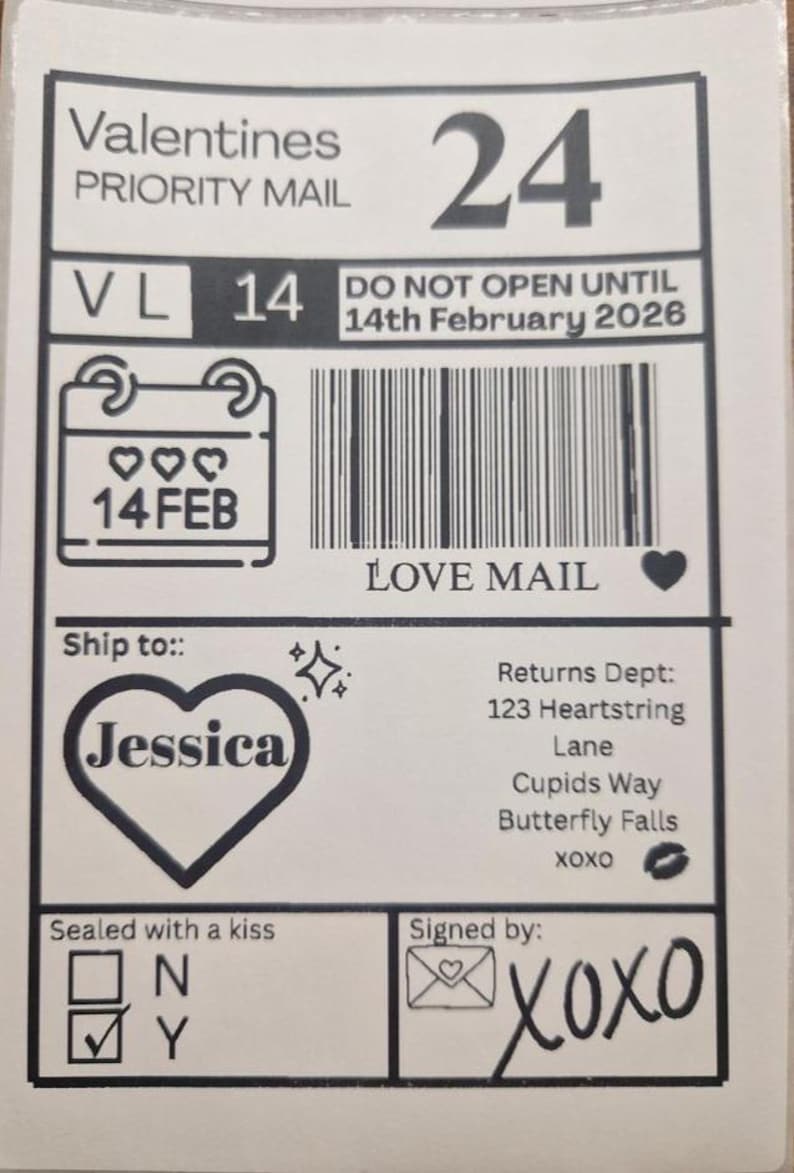 Valentines
PRIORITY MAIL
24
V L
14
DO NOT OPEN UNTIL
14th February 2026
14 FEB
LOVE MAIL
Ship to::
Jessica
Returns Dept:
123 Heartstring
Lane
Cupids Way
Butterfly Falls
xoxo
Sealed with a kiss
N
Y
Signed by:
XOXO